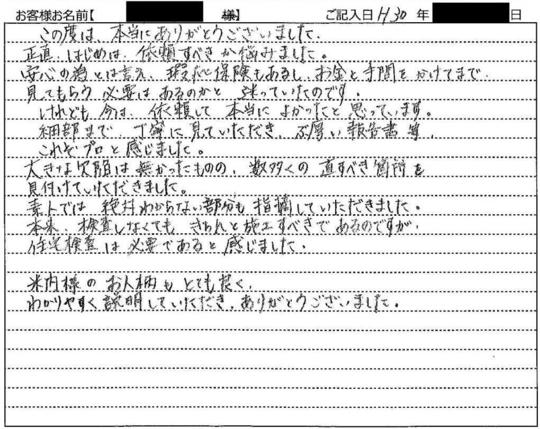 お客様お名前【 様】 ご記入日 H30 年 日
この度は、本当にありがとうございました。
正直、はじめは、依頼すべきか悩みました。
安心の為とは言え、瑕疵保険もあるし、お金と手間をかけてまで、
見てもらう必要はあるのかと 迷っていたのです。
けれども今は、依頼して 本当に よかったと 思っています。
細部まで、丁寧に見ていただき、ぶ厚い報告書 等、
これぞプロと感じました。
大きな欠陥は無かったものの、数多くの 直すべき箇所を
見付けていただきました。
素人では 絶対わからない部分も 指摘していただきました。
本来、検査しなくても きちんと施工すべきで あるのですが、
住宅検査は必要であると 感じました。
米内様の お人柄も とても良く、
わかりやすく説明していただき、ありがとうございました。